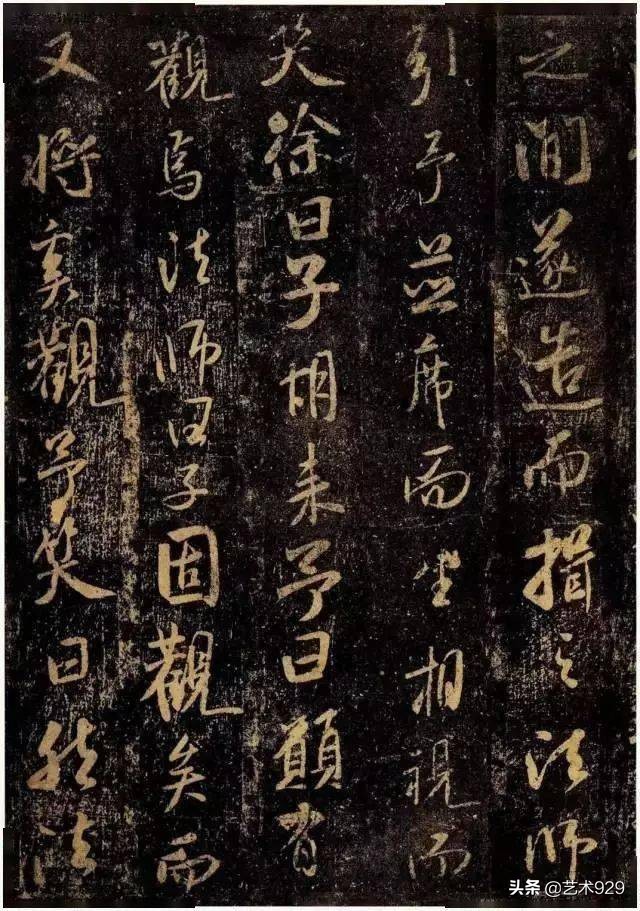 之間遂造而揖之法師
引予並席而坐相視而
笑徐曰子胡来予曰願有
觀焉法師曰子固觀矣而
又将奚觀予笑曰然法
头条 @艺术929